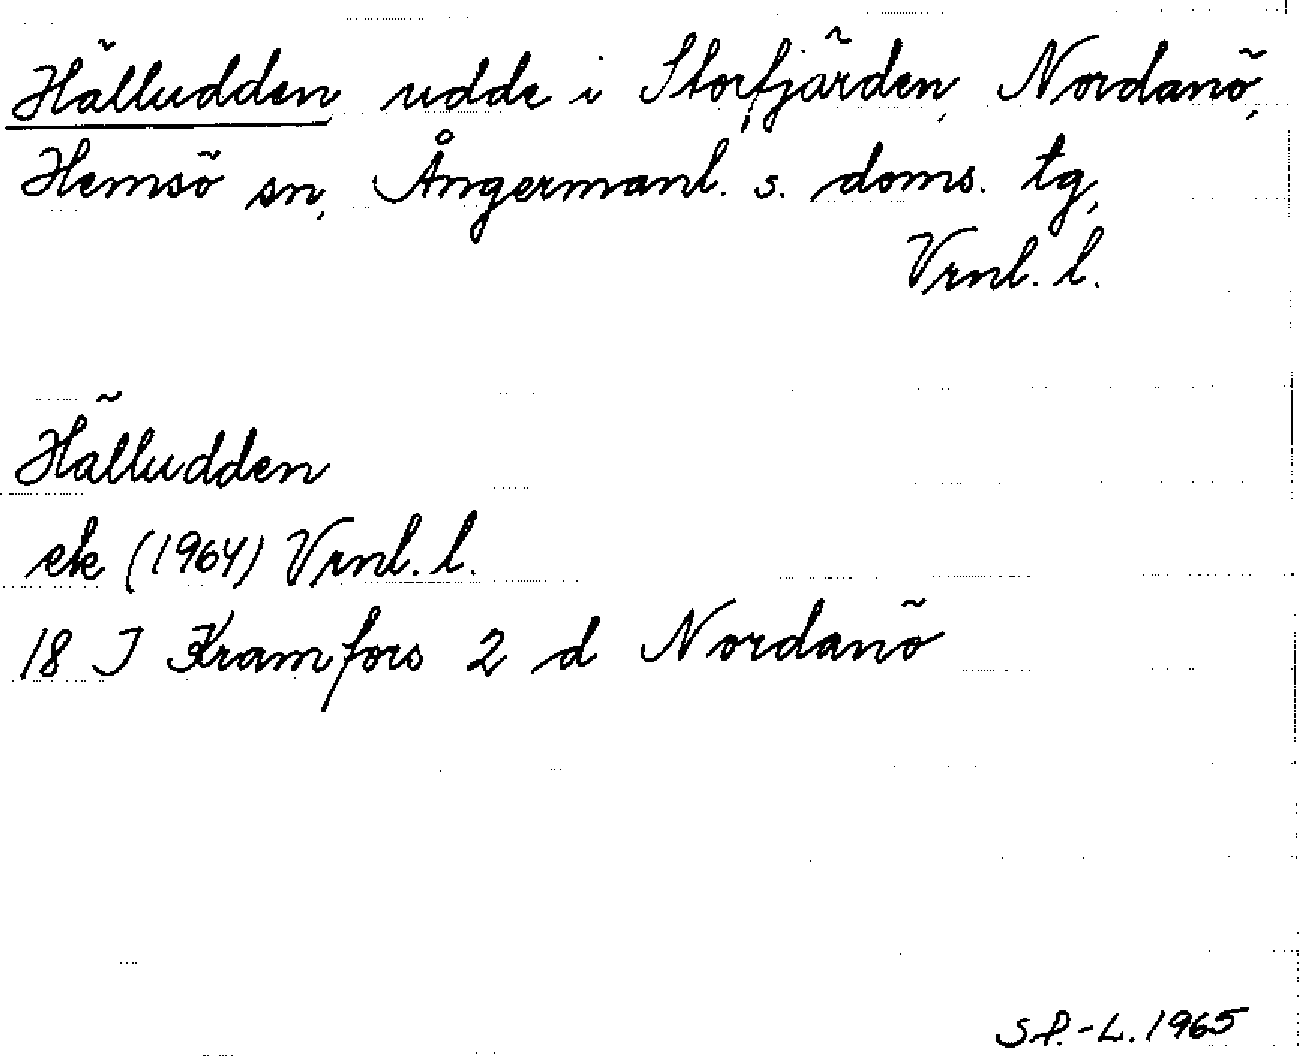 Hälludden, udde i Storfjärden, Nordanö,
Hemsö sn, Ångermanl. s. doms. tg,
Vrnl. l.
Hälludden
ek (1964) Vrnl. l.
18 I Kramfors 2 d Nordanö
S.P.-L. 1965